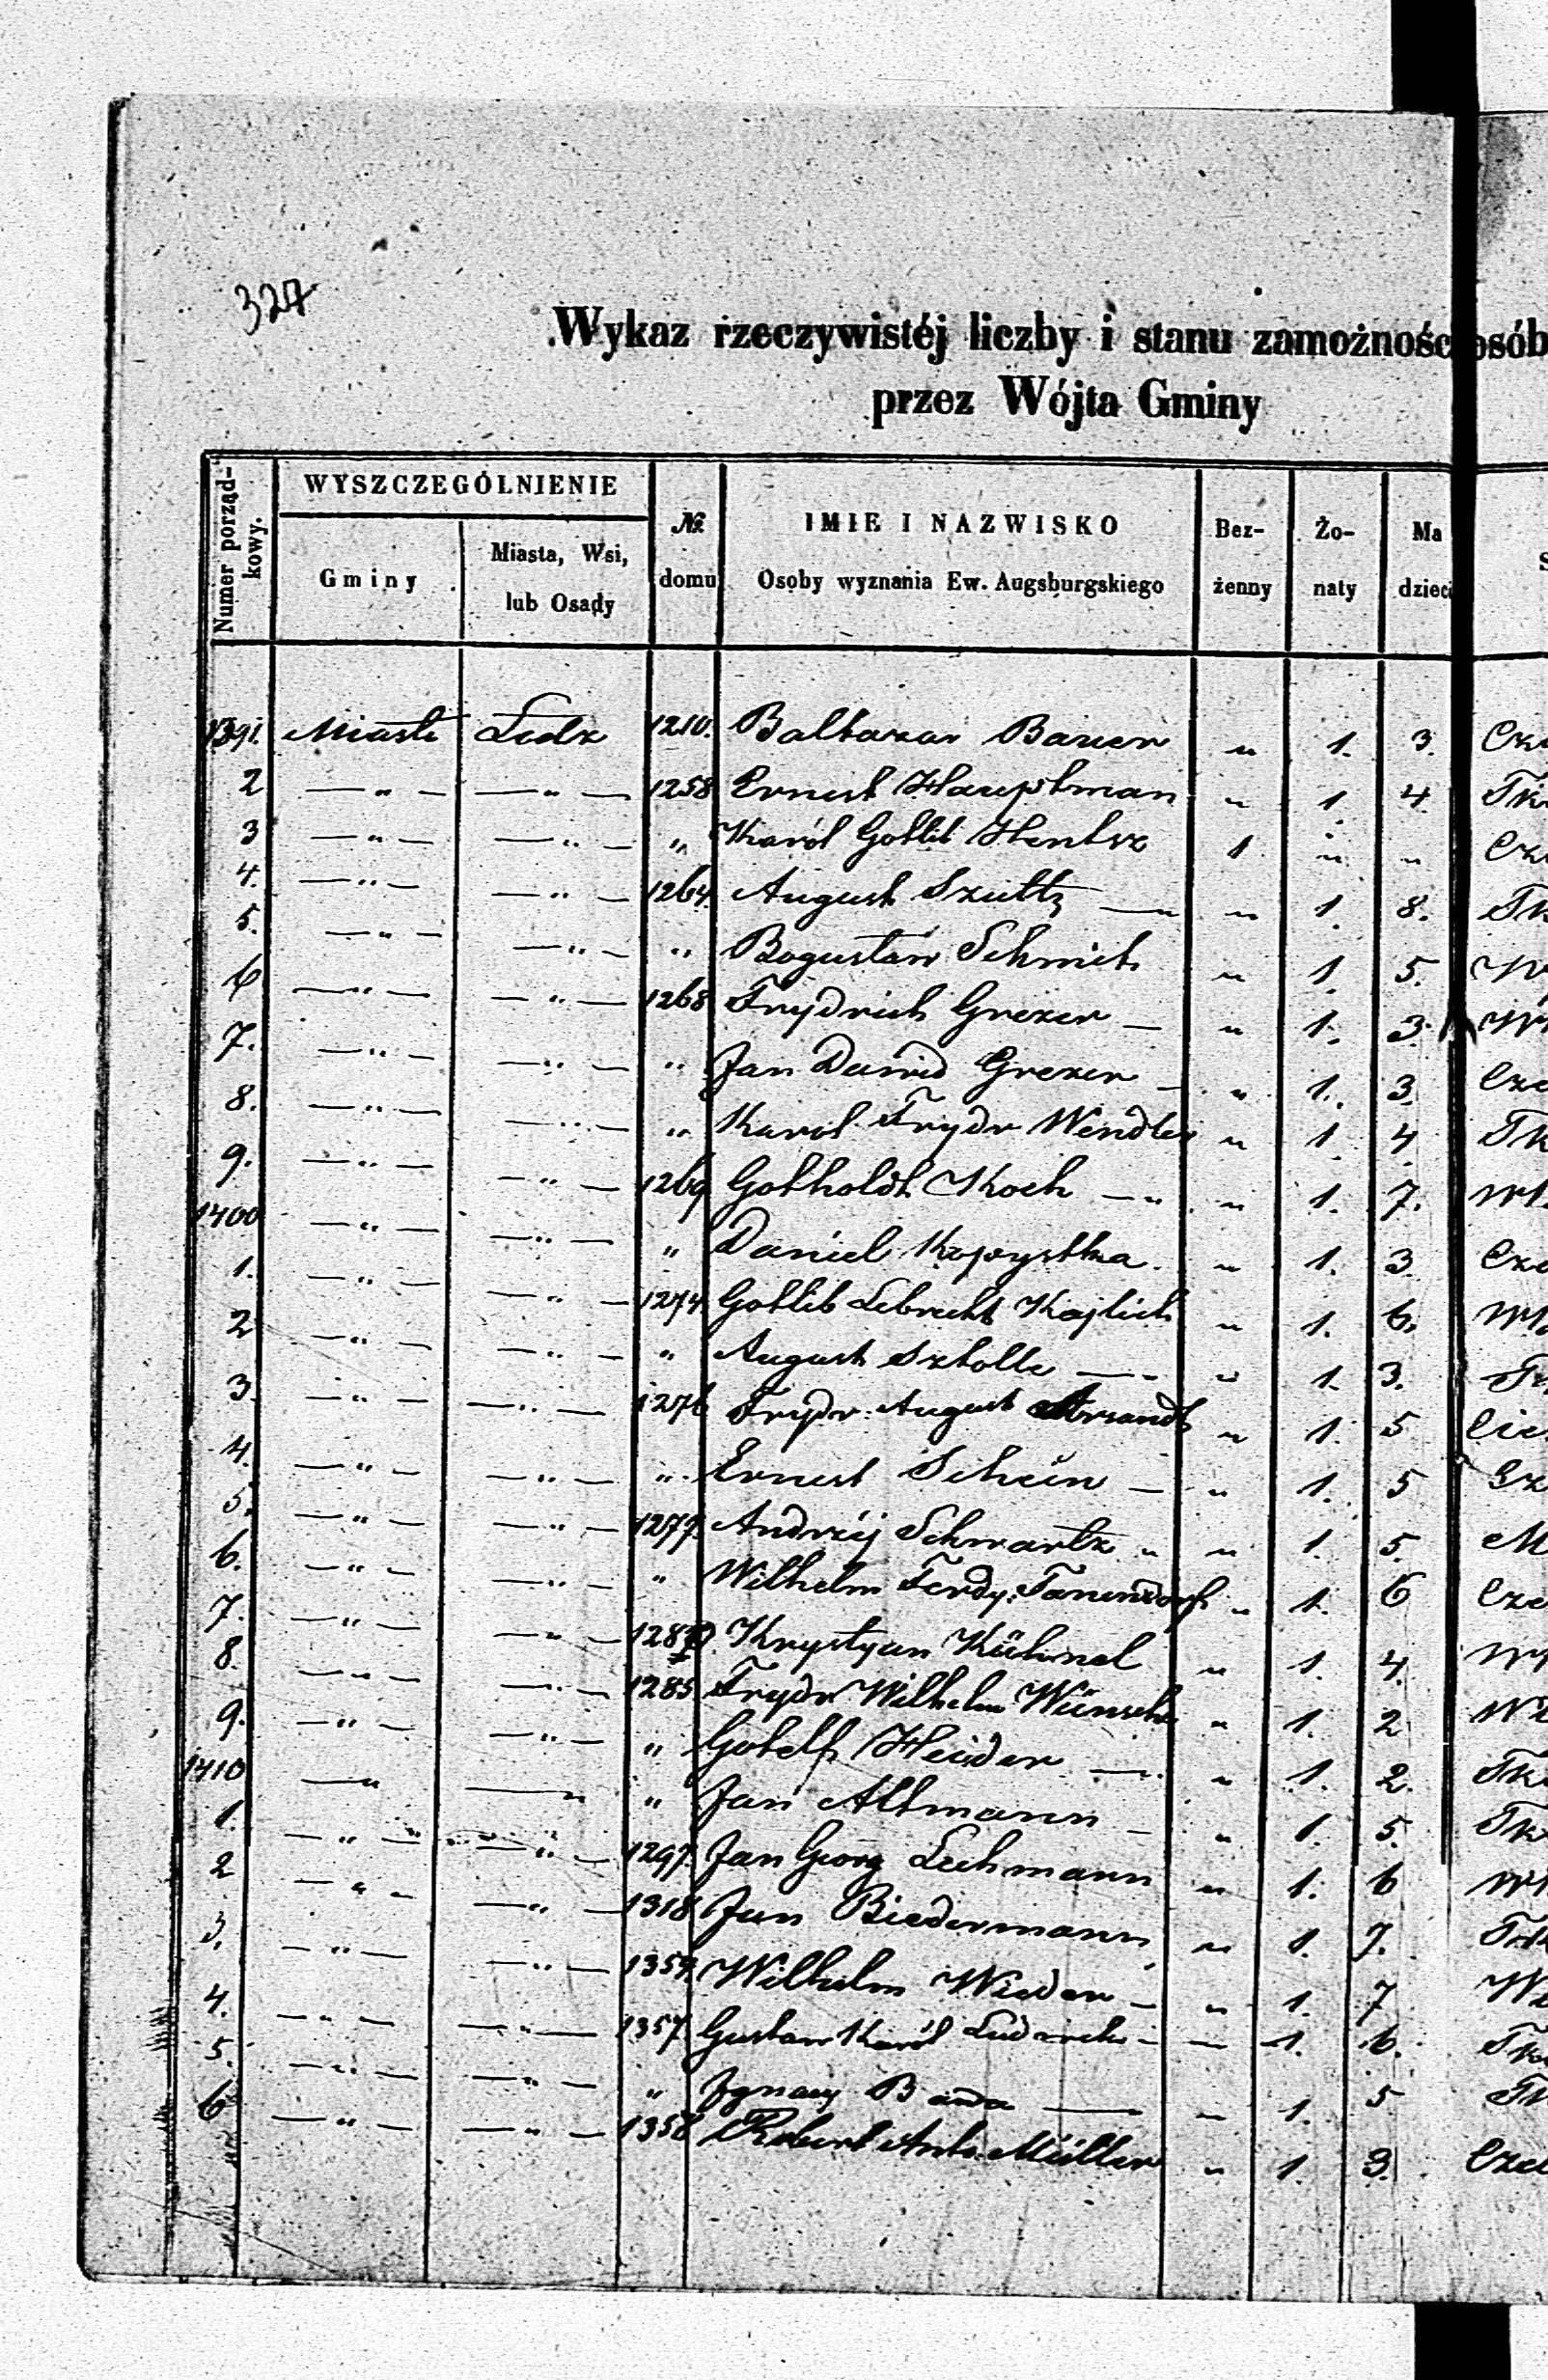 327
Wykaz rzeczywistéj liczby i stanu zamożnośc osób
przez Wójta Gminy
Numer porząd-
kowy.
WYSZCZEGÓLNIENIE
Gminy
Miasta, Wsi,
lub Osady
№
domu
IMIE I NAZWISKO
Osoby wyznania Ew. Augsburgskiego
Bez-
żenny
Żo-
naty
Ma
dzieci
1391. Miasto Lodz 1210. Baltazar Bauer " 1. 3.
2 — " — — " — 1258 Ernest Hauptman " 1. 4
3 — " — — " — " Karól Gottlib Hentsz 1 " "
4. — " — — " — 1264. August Szultz — " " 1. 8.
5. — " — — " — " Bogusław Schmith " 1. 5.
6 — " — — " — 1268 Frydrich Grezer — " 1. 3.
7. — " — — " — " Jan Dawid Grezer — " 1. 3.
8. — " — — " — " Karol Frydr Wendler " 1. 4.
9. — " — — " — 1269 Gottholdt Koch — " " 1. 7.
1400 — " — — " — " Daniel " 1. 3.
1. — " — — " — 1274. Gottlib Lebrecht Kajlich " 1. 6.
2 — " — — " — " August Sztolle — " " 1. 3.
3. — " — — " — 1276 Frydr: August " 1. 5
4. — " — — " — " Ernest Schön — " 1. 5
5. — " — — " — 1277. Andrzéj Schwartz " " 1. 5.
6. — " — — " — " Wilhelm Ferdy: Tanendorf " 1. 6
7. — " — — " — Krystyan Kühnel " 1. 4.
8. — " — — " — 1285 Frydr Wilhelm Wünsche " 1. 2
9. — " — — " — " Gotelf Heider — " 1. 2.
1410 — " — " " Jan Altmann — " 1. 5.
1. — " — — " — 1297. Jan Georg Lechmann " 1. 6
2 — " — — " — 1318 Jan Biedermann " 1. 7.
3. — " — — " — Wilhelm Wieder — " 1. 7
4. — " — — " — 1357 Gustaw Karól — 1. 6.
5. — " — — " — " Ignacy — " 1. 5
6 — " — — " — 1358 Robert Anto. Müller " 1. 3.